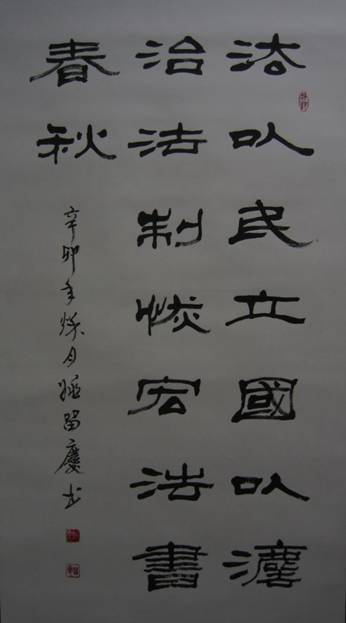 法以民立國以灋
治法制恢宏法書
春秋
辛卯年秌月留慶书